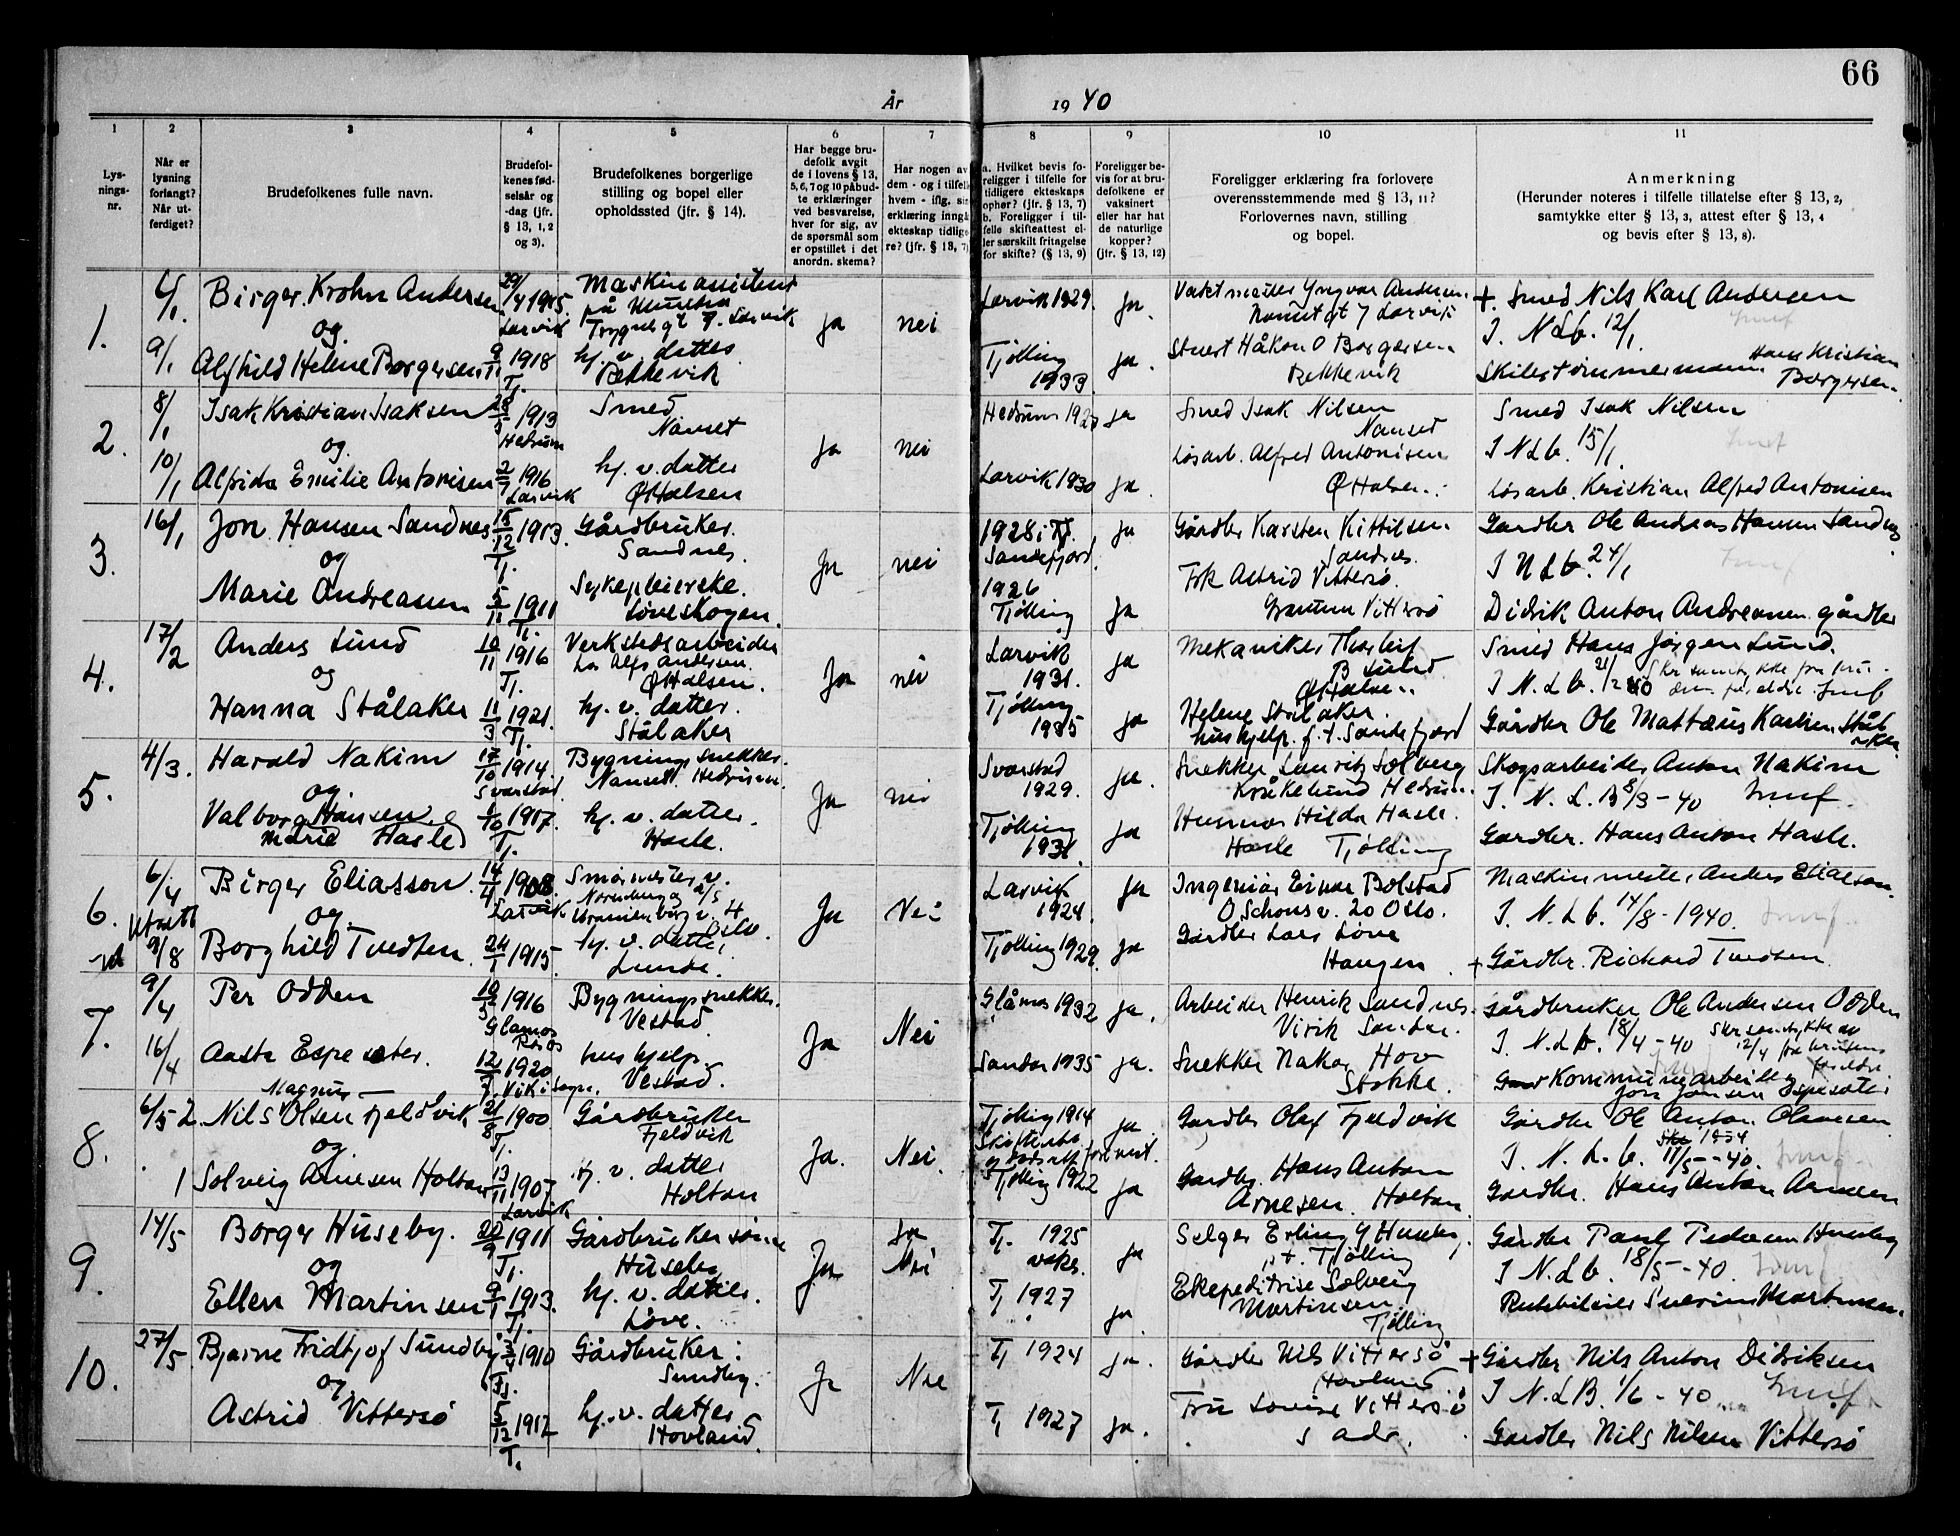 66
År 1940
1 2 3 4 5 6 7 8 9 10 11
Lys-
nings-
nr.
Når er
lysning
forlangt?
Når ut-
ferdiget?
Brudefolkenes fulle navn.
Brudefol-
kenes fød-
selsår og
-dag (jfr.
§ 13, 1, 2
og 3).
Brudefolkenes borgerlige
stilling og bopel eller
opholdssted (jfr. § 14).
Har begge bru-
defolk avgit
de i lovens § 13,
5, 6, 7 og 10 påbud-
te erklæringer
ved besvarelse,
hver for sig, av
de spørsmål som
er opstillet i det
anordn. skema?
Har nogen av
dem - og i tilfelle
hvem - iflg. sin
erklæring inngå
ekteskap tidlige-
re? (jfr. § 13, 7)
a. Hvilket bevis fo-
religger i tilfelle for
tidligere ekteskaps
ophør? (jfr. § 13, 7)
b. Foreligger i til-
felle skifteattest el-
ler særskilt fritagelse
for skifte? (§ 13, 9)
Foreligger be-
vis for at bru-
defolkene er
vaksinert
eller har hat
de naturlige
kopper?
(jfr. § 13, 12)
Foreligger erklæring fra forlovere
overensstemmende med § 13, 11?
Forlovernes navn, stilling
og bopel.
Anmerkning
(Herunder noteres i tilfelle tillatelse efter § 13, 2,
samtykke efter § 13, 3, attest efter § 13, 4
og bevis efter § 13, 8).
1.
9/1
Birger Krohn Andersen
og
Alfhild Helene Borgersen
29/4 1915.
Larvik
9/11 1918
Tj.
Maskinassistent
Larvik
hj. v. datter
Rekkevik
ja
nei
Larvik 1929.
Tjølling
1933
ja.
ja.
Larvik
Stuert Håkon O Borgersen
Rekkevik
+ Smed Nils Karl Andersen
I. N.Lb. 12/1
Hans Kristian
Borgersen.
2.
8/1
10/1
Isak Kristian Isaksen
og
Alfida Emilie Antonisen
1913
Hedrum
2/7 1916
Larvik
Smed
Nanset
hj. v. datter
Ø Halsen
ja
nei
Hedrum 1927
Larvik 1930
ja
ja.
Smed Isak Nilsen
Nanset
Løsarb. Alfred Antonisen
Ø Halsen.
Smed Isak Nilsen
I N.Lb. 15/1
Løsarb. Kristian Alfred Antonisen
3.
16/1
Jon Hansen Sandnes
og
Marie Andreassen
15/12 1913.
Tj.
5/11 1911
Tj.
Gårdbruker.
Sandnes.
Sykepleierske.
Løveskogen.
Ja
nei
1928 i Tj.
Sandefjord.
1926
Tjølling
ja
ja
Gårdbr Karsten Kittilsen
Sandnes.
Frk Astrid Vittersø.
Vittersø
Gårdbr Ole Andreas Hansen Sandnes
I N.Lb. 24/1
Didrik Anton Andreassen gårdbr
4.
17/2
Anders Lund
og
Hanna Stålaker
10/11 1916
Tj.
11/3 1921.
Tj.
Verkstedsarbeider
hos Alfs Andersen.
Ø Halsen.
hj. v. datter.
Stålaker
Ja
nei
Larvik
1931.
Tjølling
1935
ja
ja
Mekaniker Thorleif
B Lund
Ø Halsen
Helene Stålaker
hushjelp. f. t. Sandefjord
Smed Hans Jørgen Lund.
I N.Lb. 21/2 40
Gårdbr Ole Mattæus Karlsen Stål-
aker
5.
4/3.
Harald Nakim
og.
Valborg Hansen
Marie Hasle
17/10 1914.
Svarstad.
1/10 1917.
Tj.
Bygningssnekker.
Nanset Hedrum.
hj. v. datter.
Hasle.
Ja
nei
Svarstad
1929.
Tjølling
1931.
ja.
ja
Snekker Lauritz Solberg
Hedrum.
Husmor Hilda Hasle.
Hasle Tjølling
Skogsarbeider Anton Nakim
I. N. L. B 8/3 - 40
Gårdbr. Hans Anton Hasle.
6.
6/4
Utsatt
9/8
Birger Eliasson.
og.
Borghild Tvedten.
14/11 1908.
Larvik
24/1 1915.
Uranienborg v. 4
Oslo.
hj. v. datter
Lunde.
Ja
Nei
Larvik
1924.
Tjølling 1929.
ja
ja
Ingeniør Einar Bolstad
O Schous v. 20 Oslo.
Gårdbr Lars Løve
Haugen
Maskinmester Anders Eliasson.
I. N. Lb. 14/8 - 1940.
+ Gårdbr. Richard Tvedten.
7.
9/4
16/4
Per Odden
Aasta Espeseter.
1916
Glåmos
Røros
1920
Vik i Sogn.
Bygningssnekker.
Vestad.
hushjelp.
Vestad.
Ja
Nei
Glåmos 1932
Sandar 1935
ja.
ja.
Arbeider Henrik Sandnes.
Virik Sandar.
Snekker Håkon Hov
Stokke.
Gårdbruker Ole Andersen Odden
I. N.Lb. 18/4 - 40
Kommunearbeider
Jon Jonsen Espeseter
8.
6/5
2. Nils Olsen Fjeldvik
Magnus
og.
1 Solveig Arnesen Holtan
21/8 1900
Tj.
13/11 1907.
Larvik
Gårdbruker
Fjeldvik
hj. v. datter
Holtan
Ja.
Nei.
Tjølling 1914
Tjølling 1922
ja
ja
Gårdbr Olaf Fjeldvik
Gårdbr. Hans Anton
Arnesen Holtan.
Gårdbr Ole Anton Olavesen
I. N. L. b. 17/5 - 40.
Gårdbr. Hans Anton Arnesen
9.
14/5
Borger Huseby.
og
Ellen Martinsen
20/9 1911
Tj.
9/1 1913.
Tj.
Gårdbrukersønn
Huseby
hj. v. datter.
Løve.
Ja
Ja
Nei
Tj. 1925
Tj 1927
ja
ja.
Selger Erling G Huseby,
Tjølling
Ekspeditrise Solveig
Martinsen
Tjølling
Gårdbr Paul Pedersen Huseby
I N.Lb. 18/5 - 40.
Rutebileier Severin Martinsen.
10.
27/5
Bjarne Fridtjof Sundby
og.
Astrid Vittersø
1910
Tj.
5/12 1912
Tj.
Gårdbruker.
Sundby.
hj. v. datter
Hovland.
Ja
Nei
Tj 1924
Tj 1927
ja.
ja.
Gårdbr Nils Vittersø
Hovland.
Fru Lovise Vittersø
s adr.
+ Gårdbr Nils Anton Didriksen
I N.L.B. 1/6 - 40
Gårdbr Nils Nilsen Vittersø